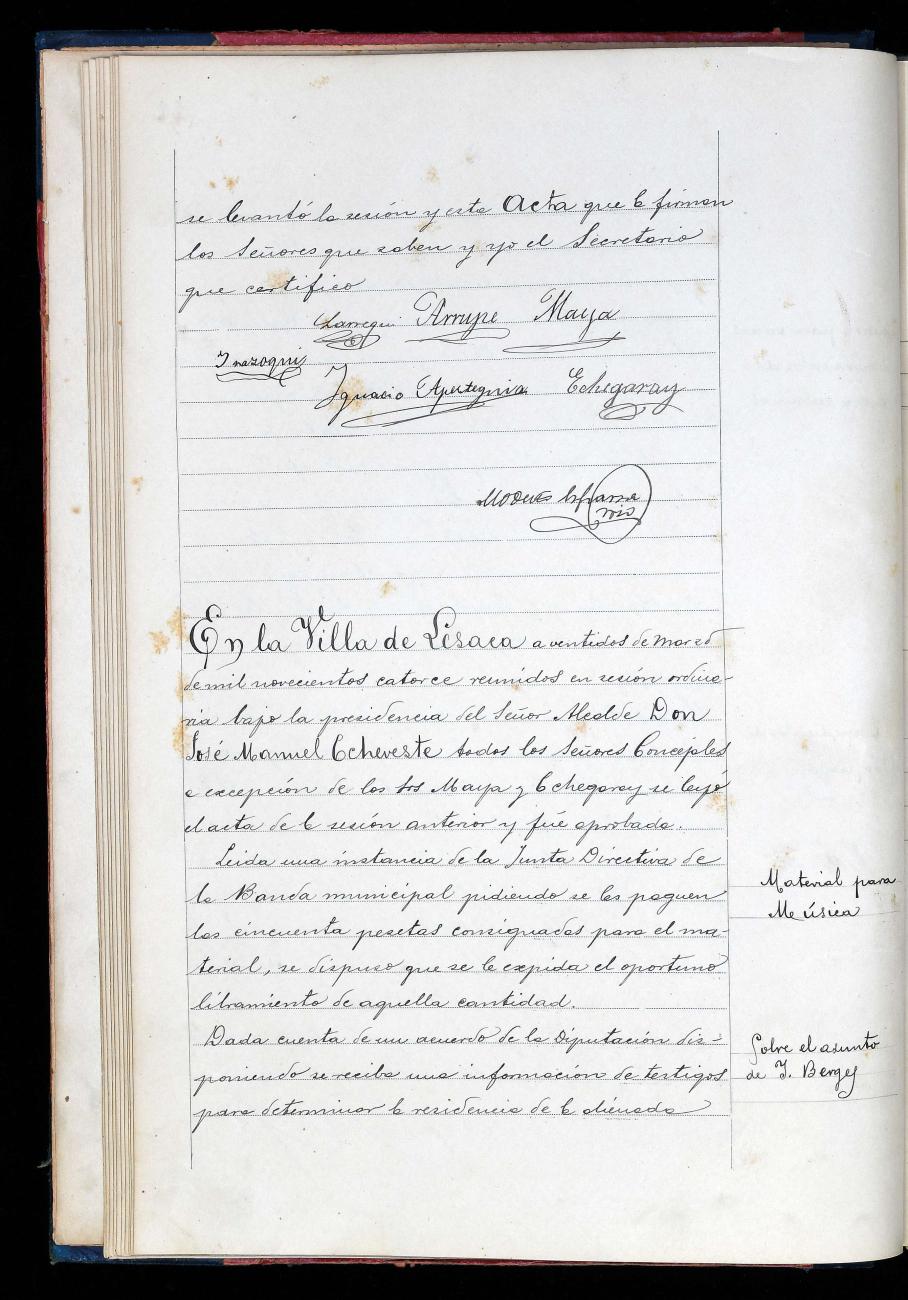 se levantó la sesión y esta Acta que la firman
los Señores que saben y yo el Secretario
que certifico
Larregui Arrupe Maya
Inazoqui
Ignacio Aperteguia Echegaray
Modesto
En la Villa de Lesaca a ventidos de Marzo
de mil novecientos catorce reunidos en sesión ordina-
ria bajo la presidencia del Señor Alcalde Don
José Manuel Echeveste todos los Señores Concejales
a excepción de los Srs Maya y Echegaray se leyó
el acta de la sesión anterior y fué aprobada.
Leida una instancia de la Junta Directiva de
la Banda municipal pidiendo se les paguen
las cincuenta pesetas consignadas para el ma-
terial, se dispuso que se le expida el oportuno
libramiento de aquella cantidad.
Material para
Música
Dada cuenta de un acuerdo de la Diputación dis-
poniendo se reciba una información de testigos
para determinar la residencia de la alienada
Sobre el asunto
de J. Berges